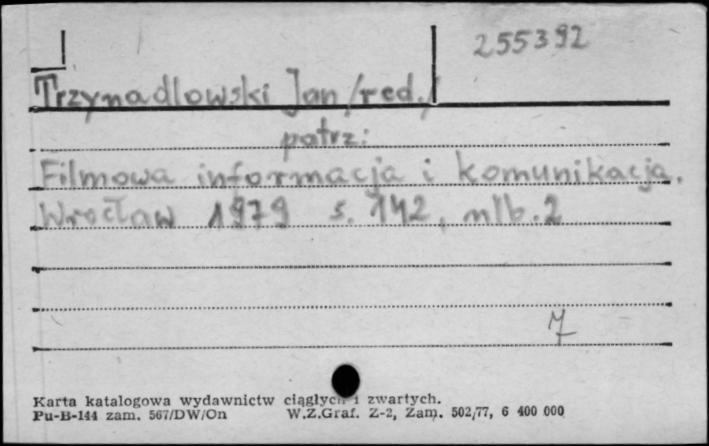 255392
Trzynadlowski Jan /red./
patrz:
Filmowa informacja i komunikacja.
Wrocław 1979 s. 142, nlb. 2
7
Karta katalogowa wydawnictw ciągłych i zwartych.
Pu-B-144 zam. 567/DW/On W.Z.Graf. Z-2, Zam. 502/77, 6 400 000